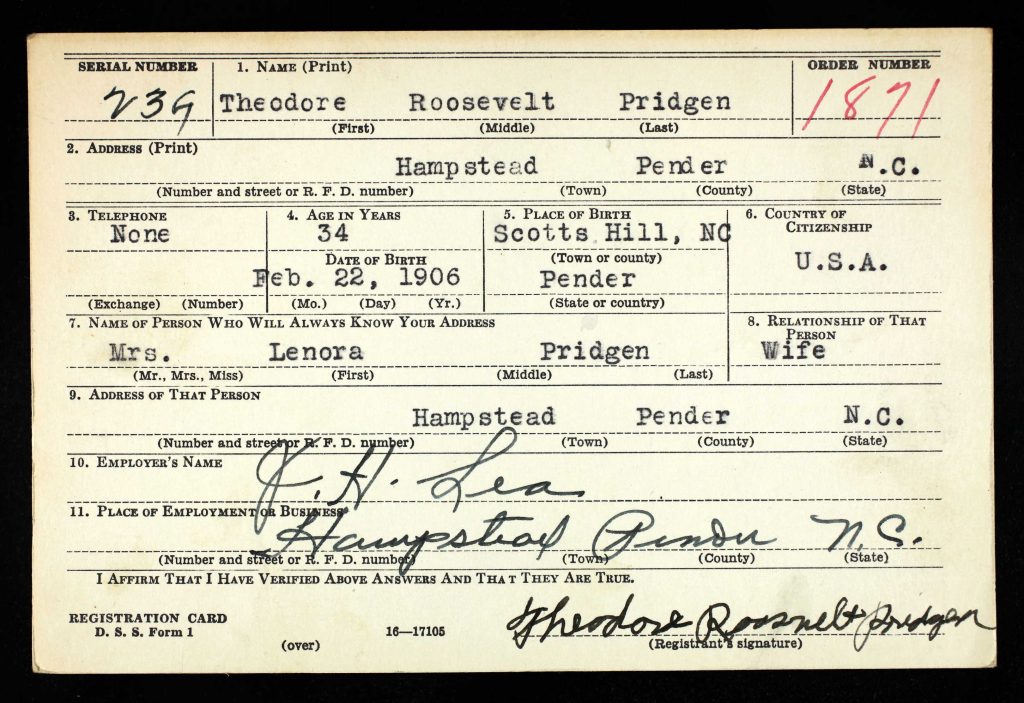 SERIAL NUMBER 1. NAME (Print) ORDER NUMBER
239 Theodore Roosevelt Pridgen 1871
(First) (Middle) (Last)
2. ADDRESS (Print)
Hampstead Pender N.C.
(Number and street or R. F. D. number) (Town) (County) (State)
3. TELEPHONE 4. AGE IN YEARS 5. PLACE OF BIRTH 6. COUNTRY OF CITIZENSHIP
None 34 Scotts Hill, NC
DATE OF BIRTH (Town or county) U.S.A.
Feb. 22, 1906 Pender
(Exchange) (Number) (Mo.) (Day) (Yr.) (State or country)
7. NAME OF PERSON WHO WILL ALWAYS KNOW YOUR ADDRESS 8. RELATIONSHIP OF THAT PERSON
Mrs. Lenora Pridgen Wife
(Mr., Mrs., Miss) (First) (Middle) (Last)
9. ADDRESS OF THAT PERSON
Hampstead Pender N.C.
(Number and street or R. F. D. number) (Town) (County) (State)
10. EMPLOYER'S NAME
J. H. Lea
11. PLACE OF EMPLOYMENT OR BUSINESS
Hampstead Pender N.C.
(Number and street or R. F. D. number) (Town) (County) (State)
I AFFIRM THAT I HAVE VERIFIED ABOVE ANSWERS AND THAT THEY ARE TRUE.
REGISTRATION CARD Theodore Roosevelt Pridgen
D. S. S. Form 1 16—17105
(over) (Registrant's signature)